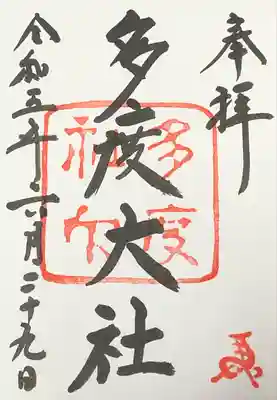 奉拝
多度大社
令和五年六月二十九日
多度
大社